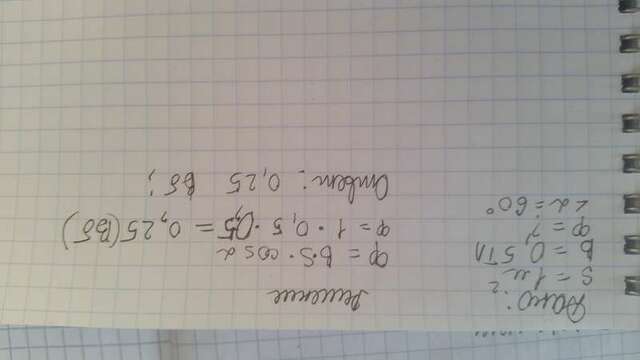 Дано:
S = 1 м²
B = 0,5 Тл
Ф = ?
<α = 60°
Решение
Ф = B·S·cos α
Ф = 1·0,5·0,5 = 0,25 (Вб)
Ответ: 0,25 Вб;